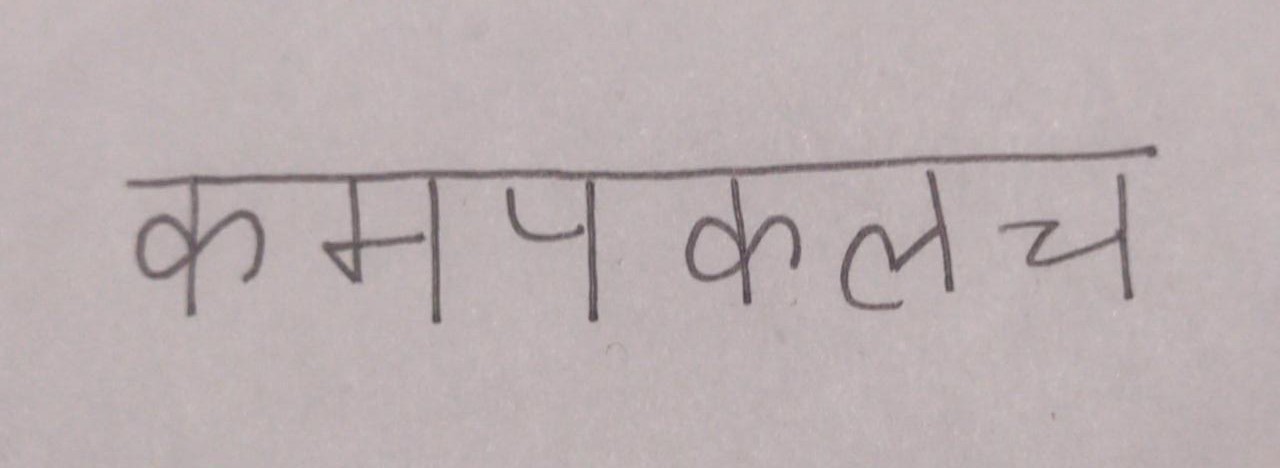 कमपकलच